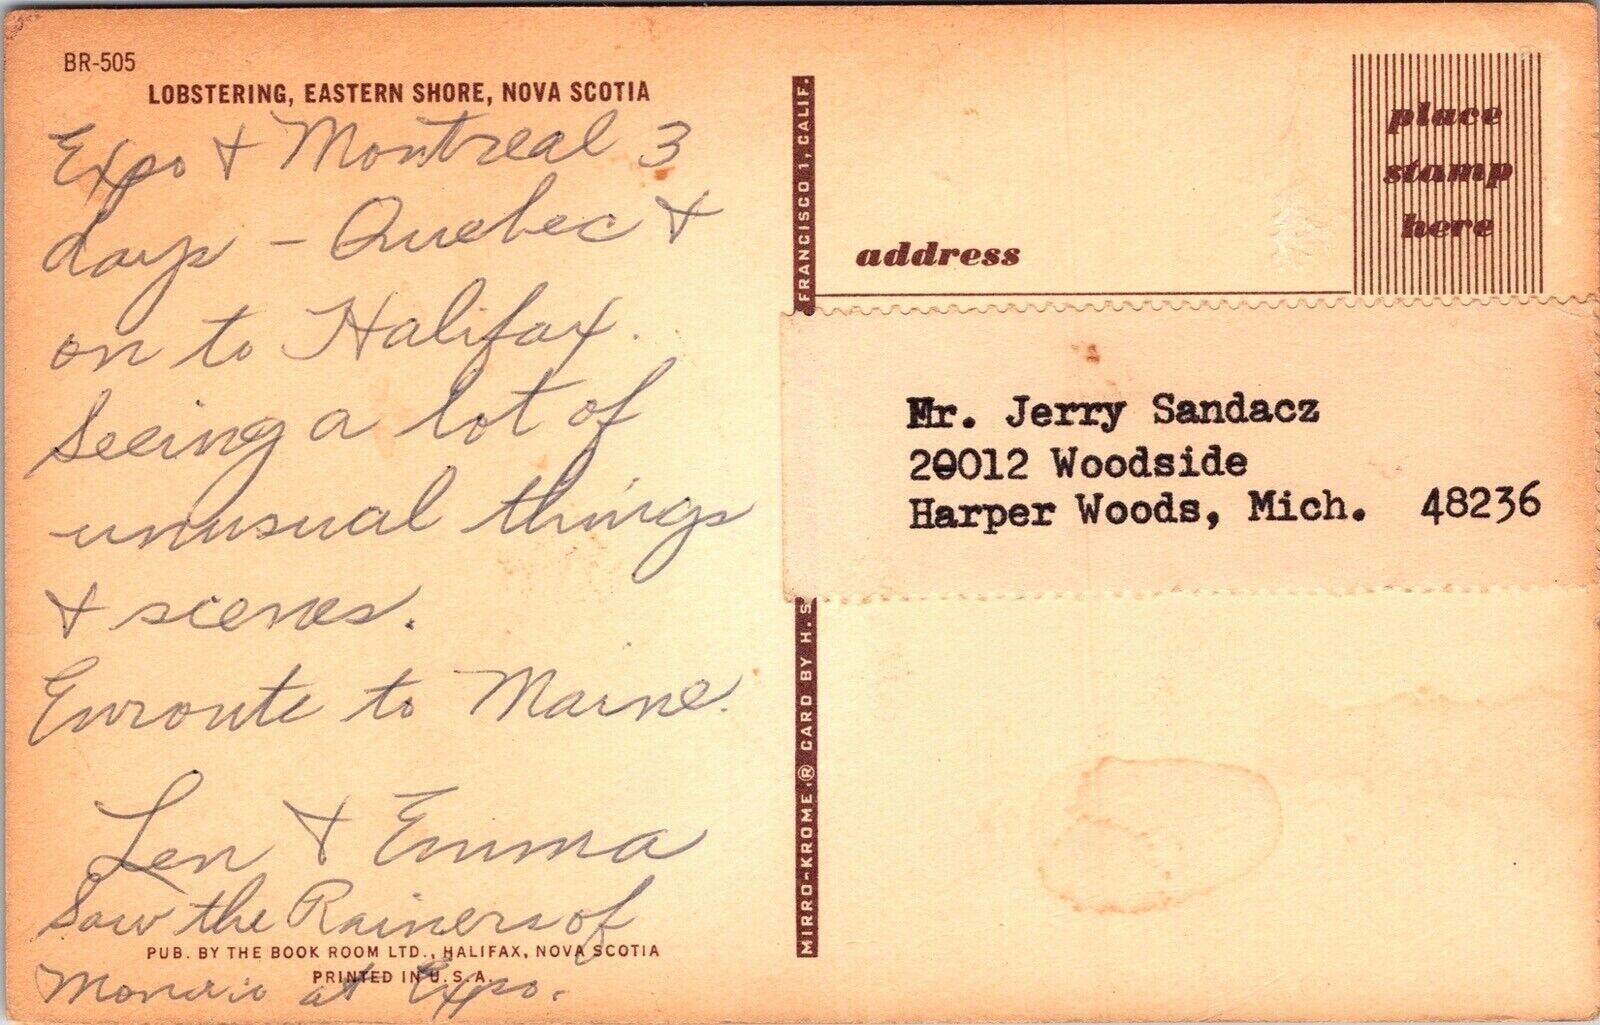 BR-505
LOBSTERING, EASTERN SHORE, NOVA SCOTIA
Expo & Montreal 3
days - Quebec &
on to Halifax.
Seeing a lot of
unusual things
& scenes.
Enroute to Maine.
Len & Emma
Saw the Rainers of
Monaco at Expo.
PUB. BY THE BOOK ROOM LTD., HALIFAX, NOVA SCOTIA
PRINTED IN U.S.A.
MIRRO-KROME® CARD BY H. S
FRANCISCO 1, CALIF.
place
stamp
here
address
Mr. Jerry Sandacz
20012 Woodside
Harper Woods, Mich. 48236